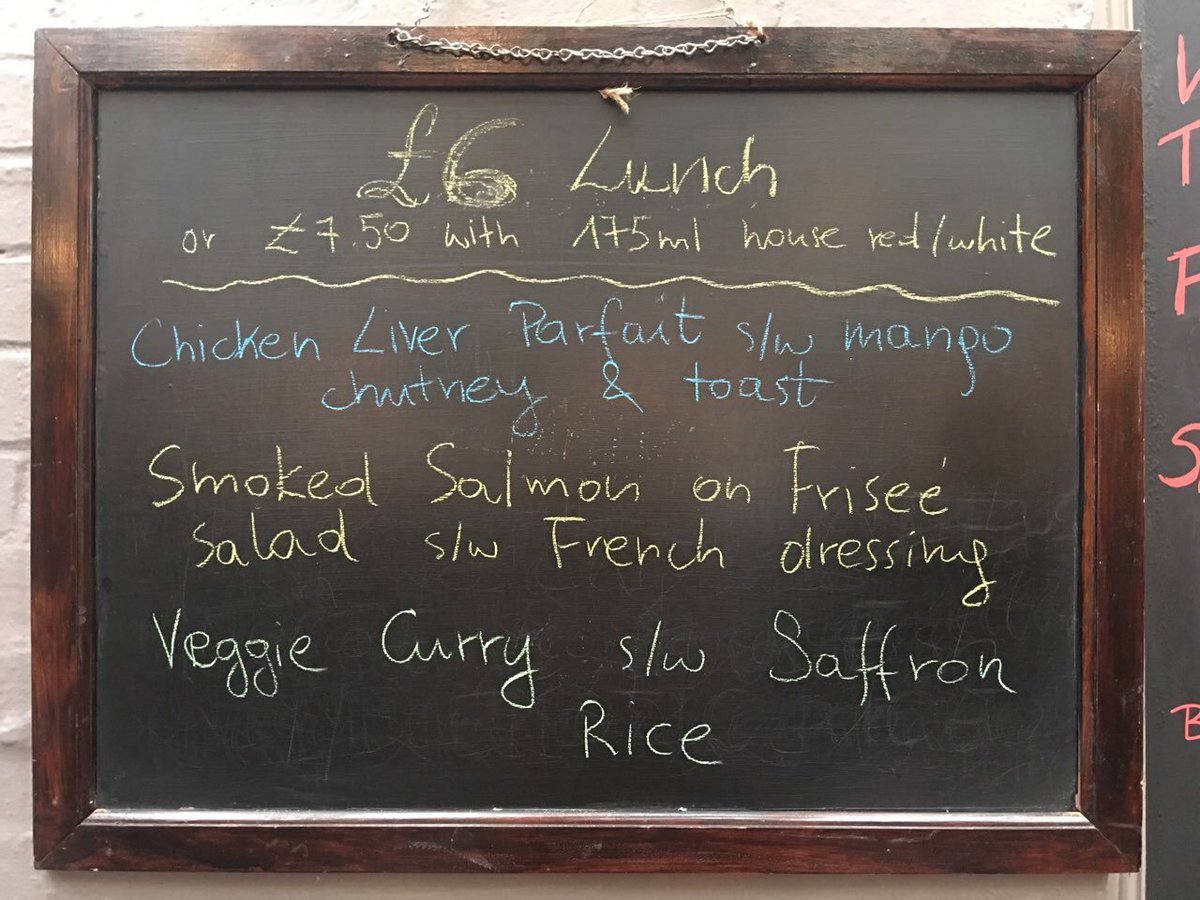 £6 Lunch
or £7.50 with 175ml house red/white
Chicken Liver Parfait s/w mango
chutney & toast
Smoked Salmon on Friseé
salad s/w French dressing
Veggie Curry s/w Saffron
Rice